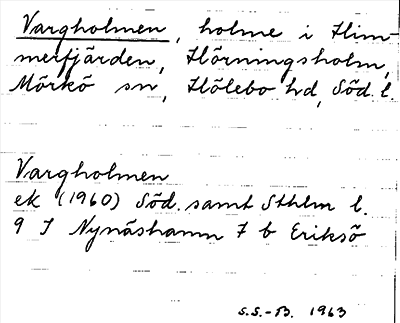 Vargholmen, holme i Him-
merfjärden, Hörningsholm,
Mörkö sn, Hölebo hd, Söd. l.
Vargholmen
ek (1960) Söd. samt Sthlm l.
9 I Nynäshamn 7 b Eriksö
S.S.-B. 1963